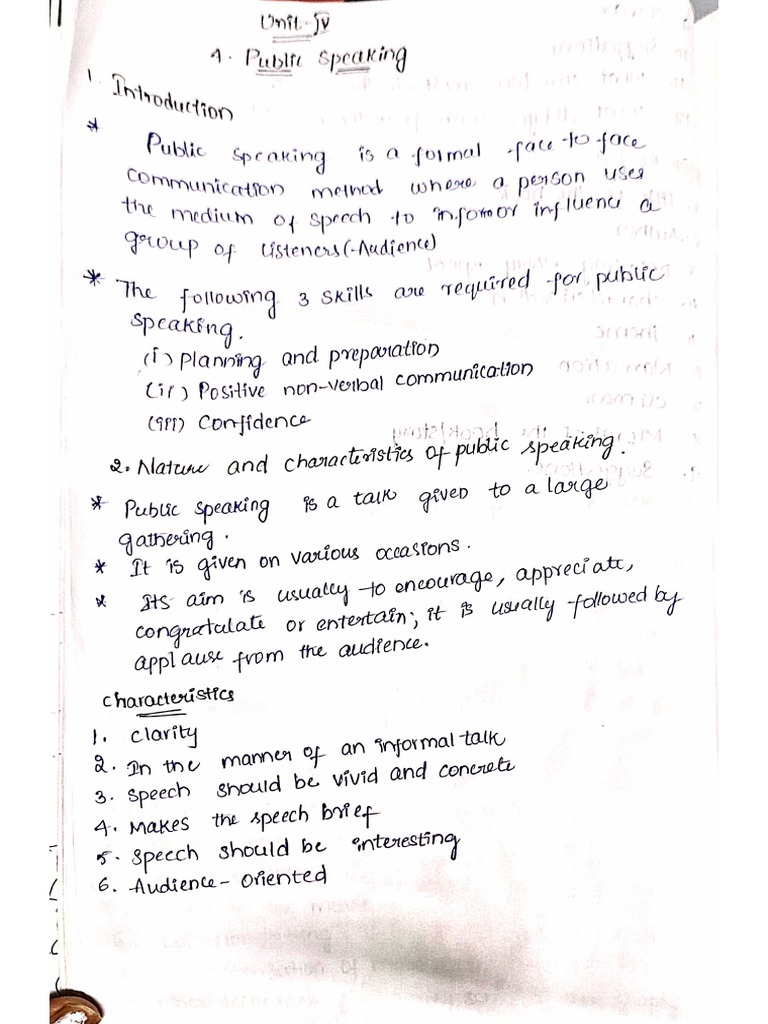 Unit-IV
4. Public speaking
1. Introduction
* Public speaking is a formal face-to-face
communication method where a person uses
the medium of speech to inform or influence a
group of listeners (Audience)
* The following 3 skills are required for public
speaking.
(i) Planning and preparation
(ii) Positive non-verbal communication
(iii) Confidence
2. Nature and characteristics of public speaking.
* Public speaking is a talk given to a large
gathering.
* It is given on various occasions.
* Its aim is usually to encourage, appreciate,
congratulate or entertain; it is usually followed by
applause from the audience.
Characteristics
1. Clarity
2. In the manner of an informal talk
3. Speech should be vivid and concrete
4. Makes the speech brief
5. Speech should be interesting
6. Audience-oriented